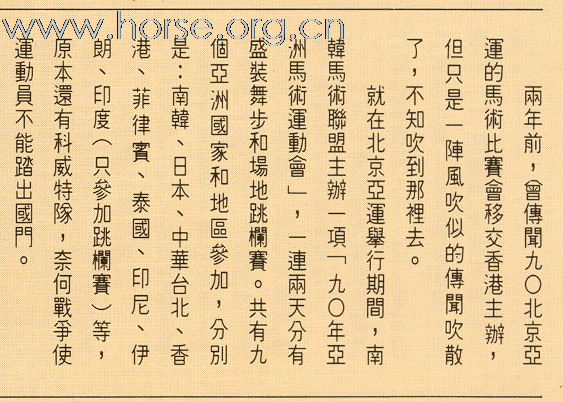 www.horse.org.cn
兩年前，曾傳聞九〇北京亞
運的馬術比賽會移交香港主辦，
但只是一陣風吹似的傳聞吹散
了，不知吹到那裡去。
就在北京亞運舉行期間，南
韓馬術聯盟主辦一項「九〇年亞
洲馬術運動會」，一連兩天分有
盛裝舞步和場地跳欄賽。共有九
個亞洲國家和地區參加，分別
是：南韓、日本、中華台北、香
港、菲律賓、泰國、印尼、伊
朗、印度（只參加跳欄賽）等，
原本還有科威特隊，奈何戰爭使
運動員不能踏出國門。